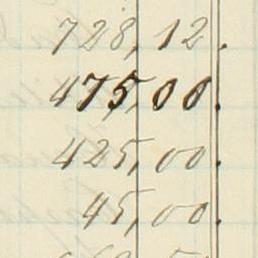 728,12.
475,00.
425,00.
45,00.